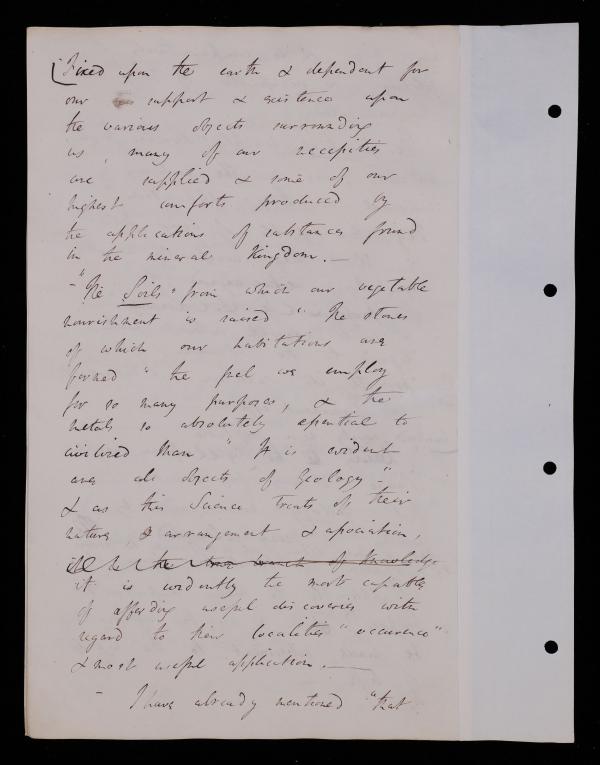 Fixed upon the earth & dependent for
our support & existence upon
the various objects surrounding
us, many of our necessities
are supplied & some of our
highest comforts produced by
the applications of substances found
in the mineral Kingdom. —
– "The Soils" from which our vegetable
nourishment is raised "The stones
of which our habitations are
formed "the fuel we employ
for so many purposes, & the
metals so absolutely essential to
civilized Man" It is evident
are all objects of Geology –"
& as this Science treats of their
nature, & arrangement & association,
the branch of Knowledge
it is evidently the most capable
of affording useful discoveries with
regard to their localities "occurence"
& most useful application. —
– I have already mentioned "that